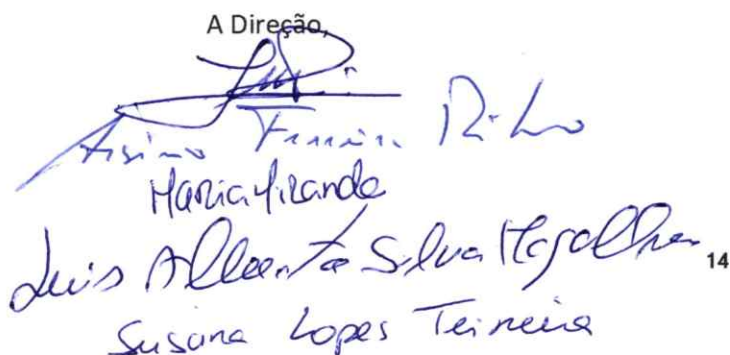 A Direção,
Ferreira
Maria Miranda
Luis Alberto Silva Magalhães
14
Susana Lopes Teixeira